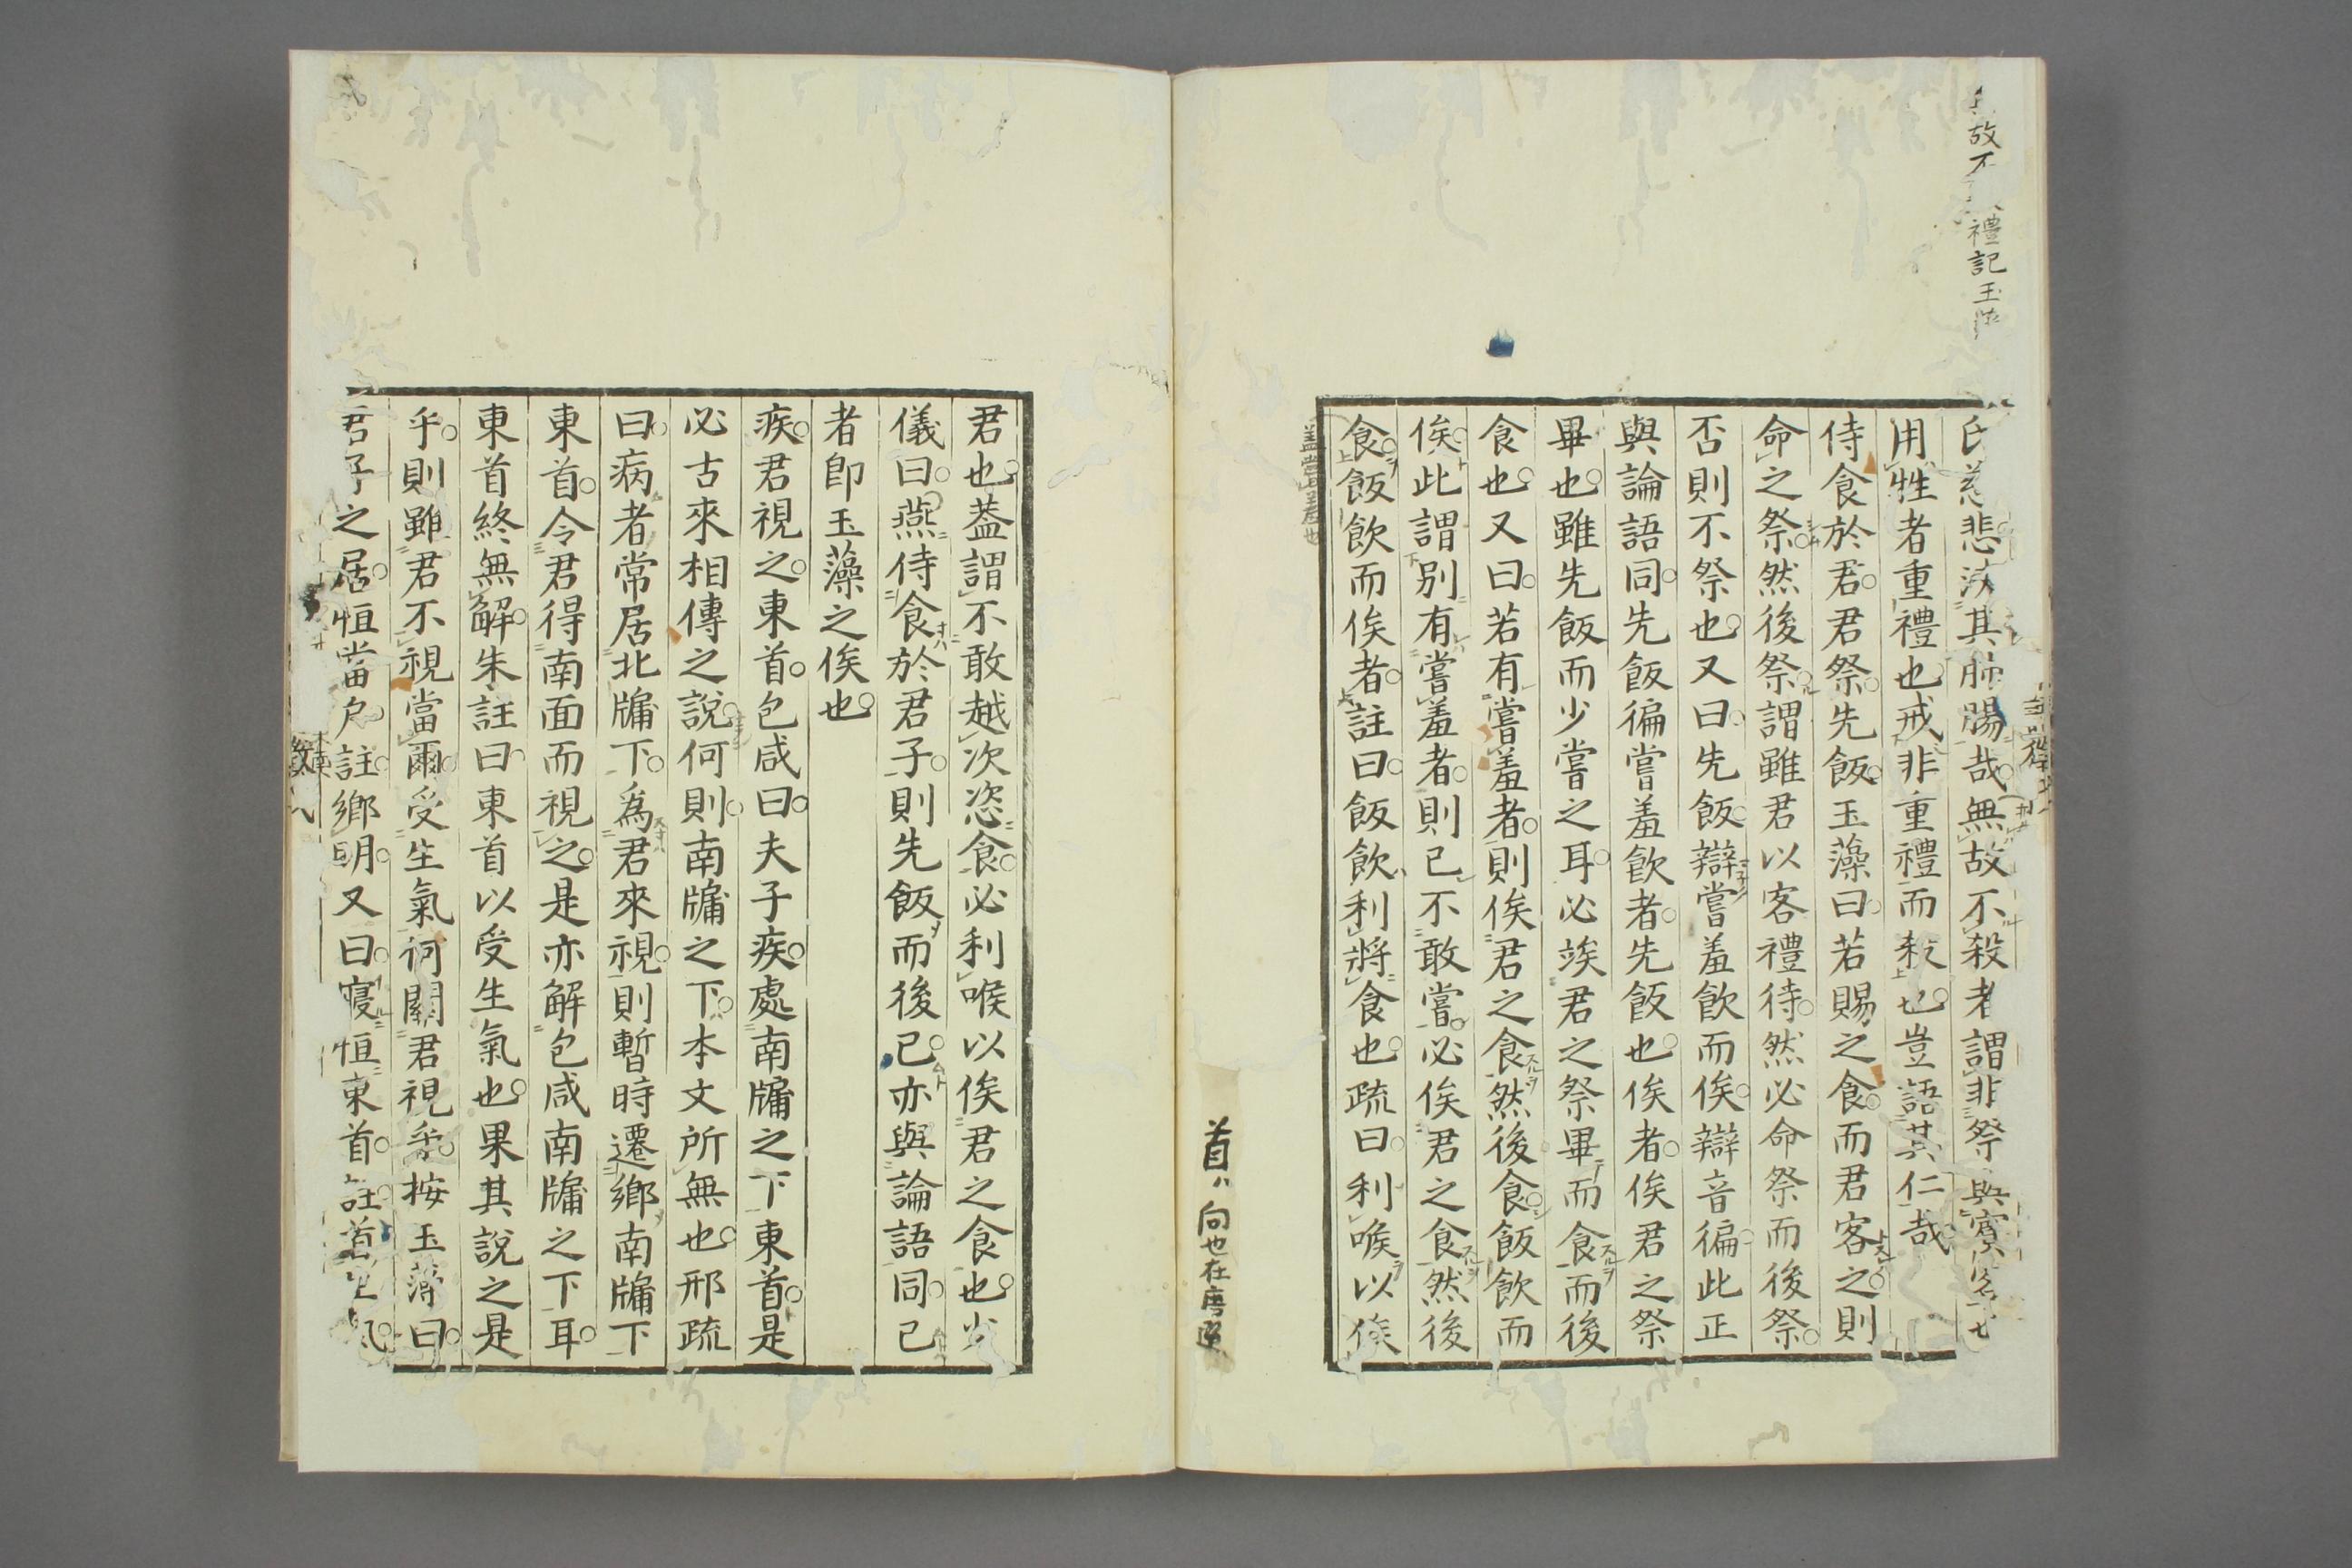 故不
禮記玉藻
氏慈悲法其肺腸哉無故不殺者謂非祭與賓客也
用牲者重禮也戒非重禮而殺也豈語其仁哉
侍食於君君祭先飯玉藻曰若賜之食而君客之則
命之祭然後祭謂雖君以客禮待然必命祭而後祭
否則不祭也又曰先飯辯嘗羞飲而俟辯音徧此正
與論語同先飯徧嘗羞飲者先飯也俟者俟君之祭
畢也雖先飯而少嘗之耳必竢君之祭畢而食而後
食也又曰若有嘗羞者則俟君之食然後食飯飲而
俟此謂別有嘗羞者則已不敢嘗必俟君之食然後
食飯飲而俟者註曰飯飲利將食也疏曰利喉以俟
盖嘗羞也
首ハ向也在唐選
君也蓋謂不敢越次恣食必利喉以俟君之食也少
儀曰燕侍食於君子則先飯而後已亦與論語同已
者卽玉藻之俟也
疾君視之東首包咸曰夫子疾處南牖之下東首是
必古來相傳之說何則南牖之下本文所無也邢疏
曰病者常居北牖下爲君來視則暫時遷鄉南牖下
東首令君得南面而視之是亦解包咸南牖之下耳
東首終無解朱註曰東首以受生氣也果其說之是
乎則雖君不視當爾受生氣何關君視乎按玉藻曰
君子之居恒當戶註鄉明又曰寢恒東首註首生氣